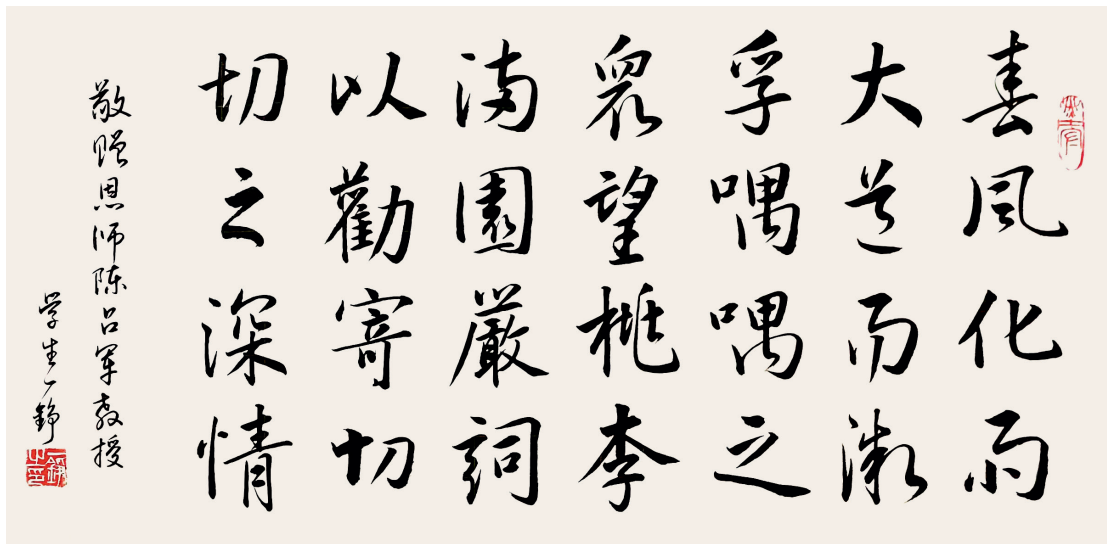 春風化雨
大道而
孚喁喁之
眾望桃李
滿園嚴詞
以勸寄切
切之深情
敬赠恩师陈吕军教授
学生一錚